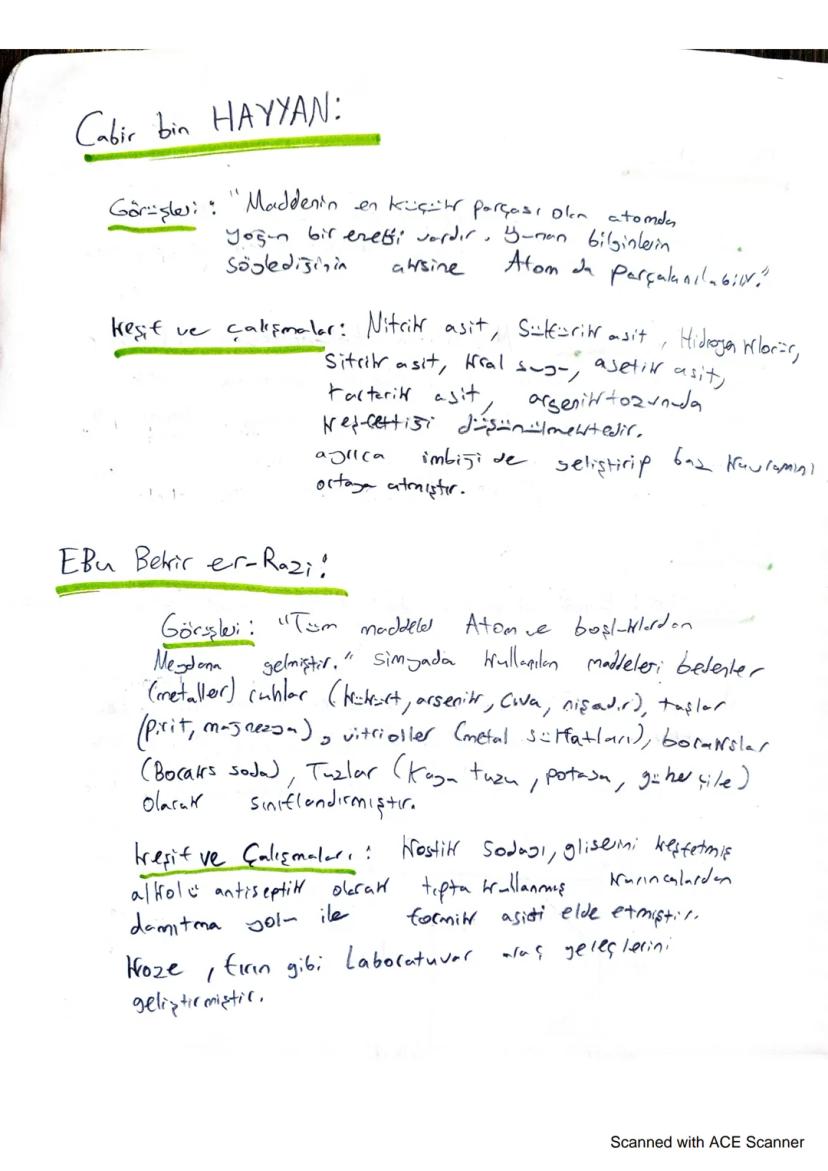 Cabir bin HAYYAN:
Görüşleri: "Maddenin en küçük parçası olan atomda
yoğun bir enerji vardır. Yunan bilginlerin
söylediğinin aksine Atom da parçalanılabilir."
Keşif ve çalışmalar: Nitrik asit, Sülfürik asit, Hidrojen klorür,
Sitrik asit, kral suyu, asetik asit,
tartarik asit, arsenik tozunuda
keşfettiği düşünülmektedir.
ayrıca imbiği de geliştirip baz kavramını
ortaya atmıştır.
EBu Bekir er-Razi:
Görüşleri: "Tüm maddeler Atom ve boşluklardan
Meydana gelmiştir." simyada kullanılan maddeleri bedenler
(metaller) ruhlar (kükürt, arsenik, Civa, nişadır), taşlar
(pirit, magnezya), vitrioller (metal sülfatları), borakslar
(Boraks soda), Tuzlar (Kaya tuzu, potasa, güherçile)
olarak sınıflandırmıştır.
Keşif ve Çalışmaları: Kostik Sodayı, gliserini keşfetmiş
alkolü antiseptik olarak tıpta kullanmış karıncalardan
damıtma yolu ile formik asidi elde etmiştir.
Kroze, fırın gibi Laboratuvar araç gereçlerini
geliştirmiştir.
Scanned with ACE Scanner